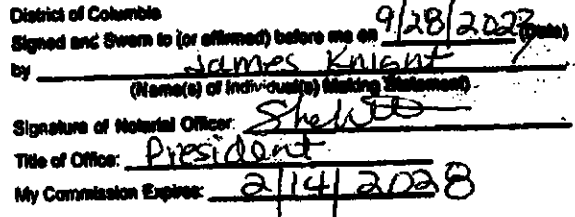 District of Columbia
Signed and Sworn to (or affirmed) before me on 9/28/2023 (Date)
by James Knight
(Name(s) of Individual(s) Making Statement)
Signature of Notarial Officer:
Title of Office: President
My Commission Expires: 2/14/2028